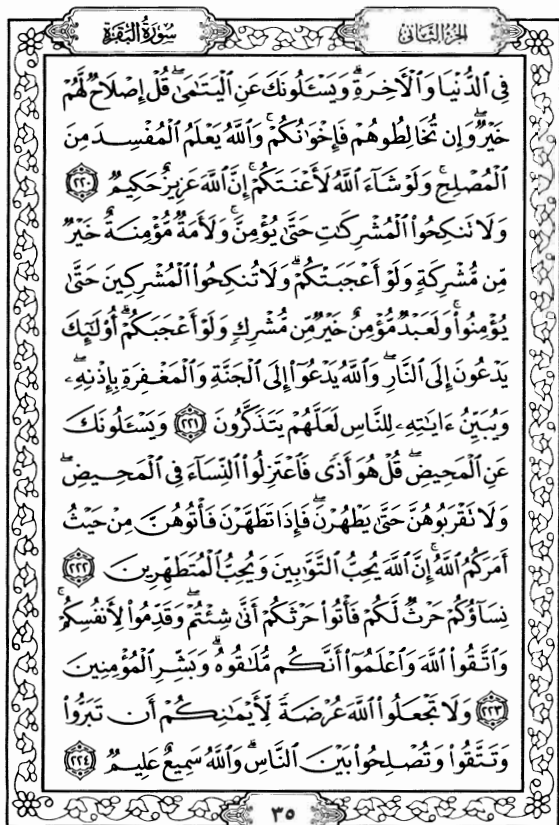 الجزء الثاني
سورة البقرة
فِي الدُّنْيَا وَالْآخِرَةِ ۗ وَيَسْـَٔلُونَكَ عَنِ الْيَتَـٰمَىٰ ۖ قُلْ إِصْلَاحٌ لَّهُمْ
خَيْرٌ ۖ وَإِن تُخَالِطُوهُمْ فَإِخْوَٰنُكُمْ ۚ وَاللَّهُ يَعْلَمُ الْمُفْسِدَ مِنَ
الْمُصْلِحِ ۚ وَلَوْ شَآءَ اللَّهُ لَأَعْنَتَكُمْ ۚ إِنَّ اللَّهَ عَزِيزٌ حَكِيمٌ ٢٢٠
وَلَا تَنكِحُوا۟ الْمُشْرِكَـٰتِ حَتَّىٰ يُؤْمِنَّ ۚ وَلَأَمَةٌ مُّؤْمِنَةٌ خَيْرٌ
مِّن مُّشْرِكَةٍ وَلَوْ أَعْجَبَتْكُمْ ۗ وَلَا تُنكِحُوا۟ الْمُشْرِكِينَ حَتَّىٰ
يُؤْمِنُوا۟ ۚ وَلَعَبْدٌ مُّؤْمِنٌ خَيْرٌ مِّن مُّشْرِكٍ وَلَوْ أَعْجَبَكُمْ ۗ أُو۟لَـٰٓئِكَ
يَدْعُونَ إِلَى النَّارِ ۖ وَاللَّهُ يَدْعُوٓا۟ إِلَى الْجَنَّةِ وَالْمَغْفِرَةِ بِإِذْنِهِۦ ۖ
وَيُبَيِّنُ ءَايَـٰتِهِۦ لِلنَّاسِ لَعَلَّهُمْ يَتَذَكَّرُونَ ٢٢١ وَيَسْـَٔلُونَكَ
عَنِ الْمَحِيضِ ۖ قُلْ هُوَ أَذًى فَاعْتَزِلُوا۟ النِّسَآءَ فِي الْمَحِيضِ ۖ
وَلَا تَقْرَبُوهُنَّ حَتَّىٰ يَطْهُرْنَ ۖ فَإِذَا تَطَهَّرْنَ فَأْتُوهُنَّ مِنْ حَيْثُ
أَمَرَكُمُ اللَّهُ ۚ إِنَّ اللَّهَ يُحِبُّ التَّوَّٰبِينَ وَيُحِبُّ الْمُتَطَهِّرِينَ ٢٢٢
نِسَآؤُكُمْ حَرْثٌ لَّكُمْ فَأْتُوا۟ حَرْثَكُمْ أَنَّىٰ شِئْتُمْ ۖ وَقَدِّمُوا۟ لِأَنفُسِكُمْ ۚ
وَاتَّقُوا۟ اللَّهَ وَاعْلَمُوٓا۟ أَنَّكُم مُّلَـٰقُوهُ ۗ وَبَشِّرِ الْمُؤْمِنِينَ
٢٢٣ وَلَا تَجْعَلُوا۟ اللَّهَ عُرْضَةً لِّأَيْمَـٰنِكُمْ أَن تَبَرُّوا۟
وَتَتَّقُوا۟ وَتُصْلِحُوا۟ بَيْنَ النَّاسِ ۗ وَاللَّهُ سَمِيعٌ عَلِيمٌ ٢٢٤
٣٥